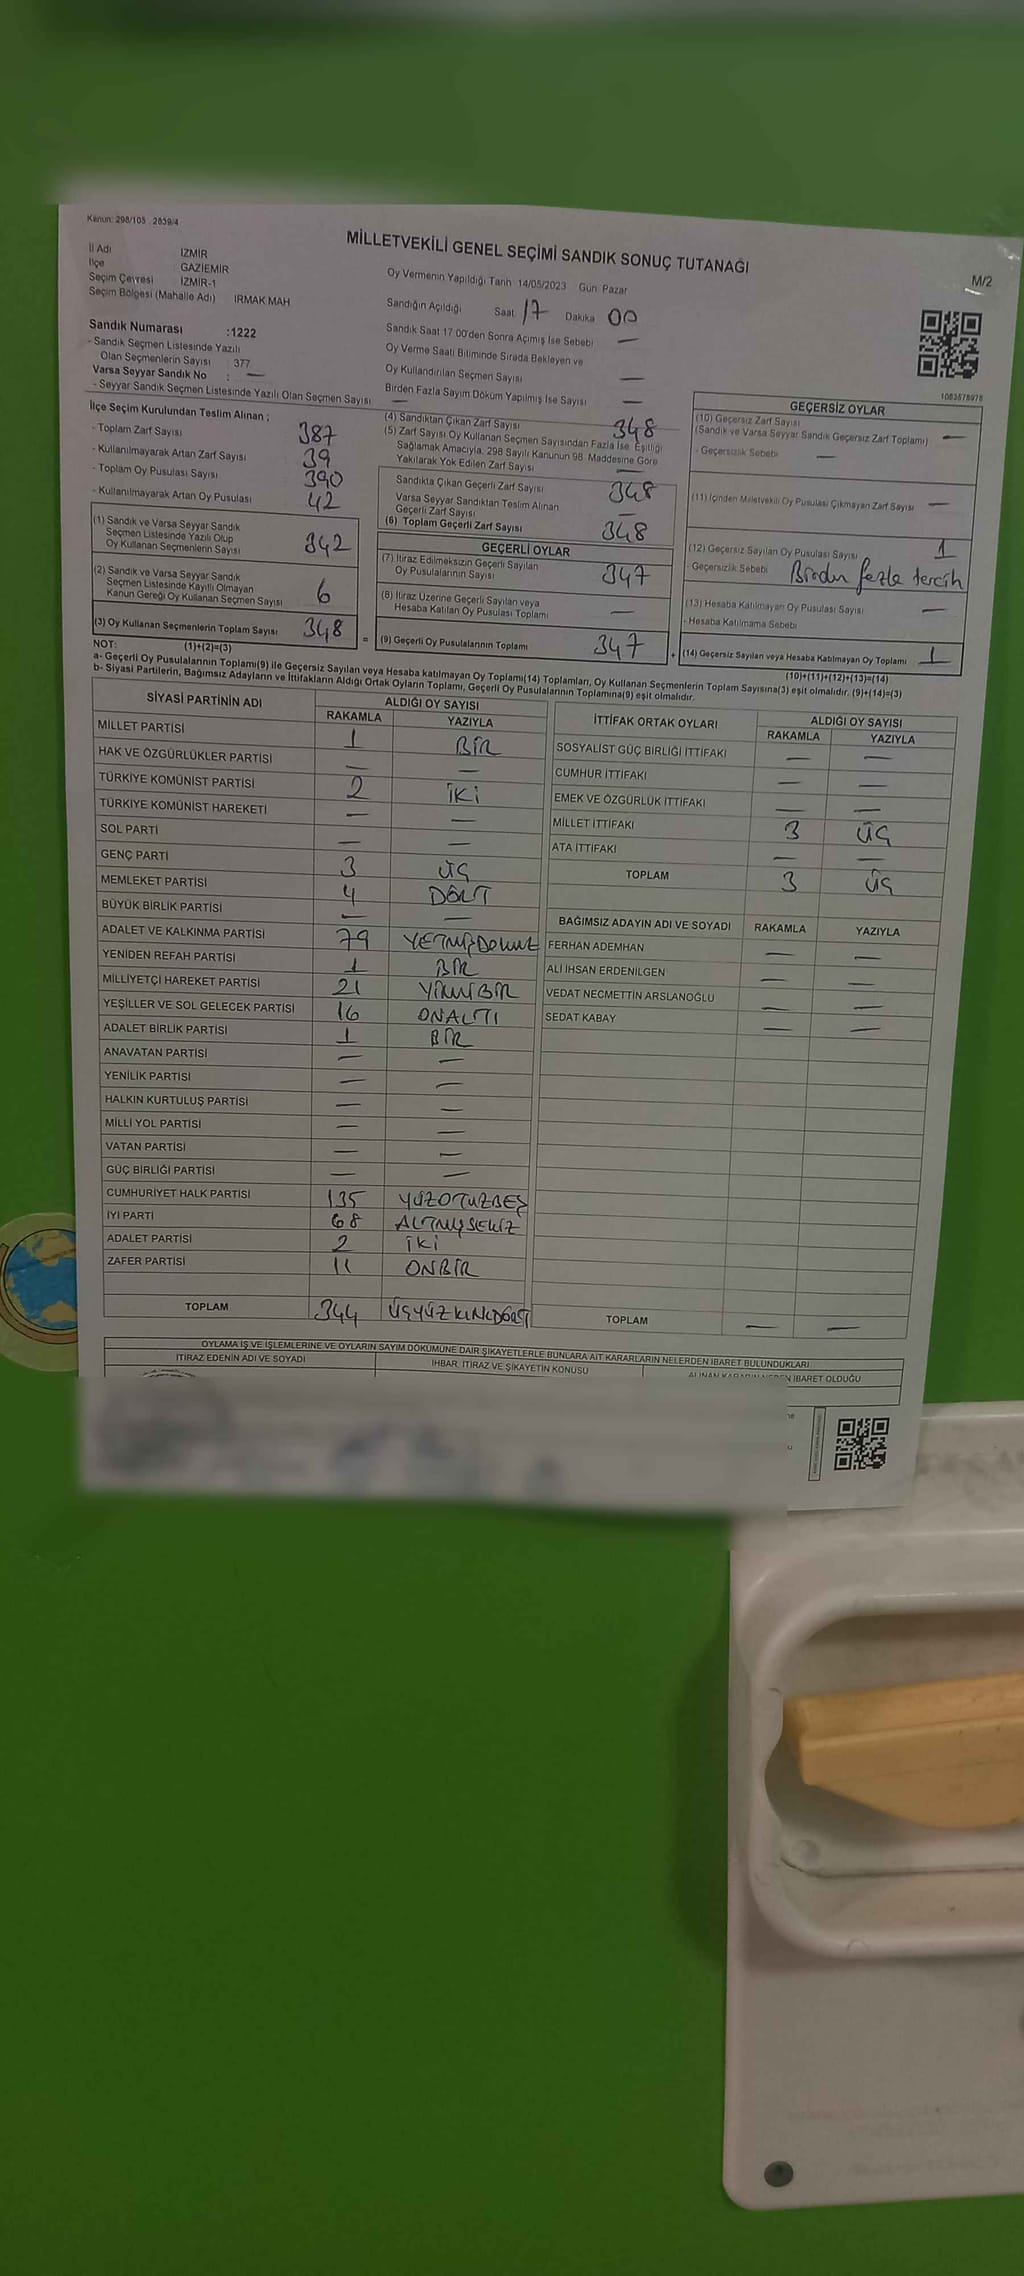 Kanun: 298/105 , 2839/4
MİLLETVEKİLİ GENEL SEÇİMİ SANDIK SONUÇ TUTANAĞI
M/2
İl Adı İZMİR
İlçe GAZİEMİR
Seçim Çevresi İZMİR-1
Seçim Bölgesi (Mahalle Adı) IRMAK MAH
Sandık Numarası :1222
- Sandık Seçmen Listesinde Yazılı
Olan Seçmenlerin Sayısı : 377
Varsa Seyyar Sandık No : —
- Seyyar Sandık Seçmen Listesinde Yazılı Olan Seçmen Sayısı —
Oy Vermenin Yapıldığı Tarih 14/05/2023 Gün Pazar
Sandığın Açıldığı Saat 17 Dakika 00
Sandık Saat 17.00'den Sonra Açmış İse Sebebi —
Oy Verme Saati Bitiminde Sırada Bekleyen ve
Oy Kullandırılan Seçmen Sayısı —
Birden Fazla Sayım Döküm Yapılmış İse Sayısı —
1083578978
İlçe Seçim Kurulundan Teslim Alınan :
- Toplam Zarf Sayısı 387
- Kullanılmayarak Artan Zarf Sayısı 39
- Toplam Oy Pusulası Sayısı 390
- Kullanılmayarak Artan Oy Pusulası 42
(1) Sandık ve Varsa Seyyar Sandık
Seçmen Listesinde Yazılı Olup
Oy Kullanan Seçmenlerin Sayısı 342
(2) Sandık ve Varsa Seyyar Sandık
Seçmen Listesinde Kayıtlı Olmayan
Kanun Gereği Oy Kullanan Seçmen Sayısı 6
(3) Oy Kullanan Seçmenlerin Toplam Sayısı 348 =
(4) Sandıktan Çıkan Zarf Sayısı 348
(5) Zarf Sayısı Oy Kullanan Seçmen Sayısından Fazla İse, Eşitliği
Sağlamak Amacıyla, 298 Sayılı Kanunun 98. Maddesine Göre
Yakılarak Yok Edilen Zarf Sayısı —
Sandıkta Çıkan Geçerli Zarf Sayısı 348
Varsa Seyyar Sandıktan Teslim Alınan
Geçerli Zarf Sayısı —
(6) Toplam Geçerli Zarf Sayısı 348
GEÇERLİ OYLAR
(7) İtiraz Edilmeksizin Geçerli Sayılan
Oy Pusulalarının Sayısı 347
(8) İtiraz Üzerine Geçerli Sayılan veya
Hesaba Katılan Oy Pusulası Toplamı —
(9) Geçerli Oy Pusulalarının Toplamı 347 +
GEÇERSİZ OYLAR
(10) Geçersiz Zarf Sayısı
(Sandık ve Varsa Seyyar Sandık Geçersiz Zarf Toplamı) —
- Geçersizlik Sebebi —
(11) İçinden Milletvekili Oy Pusulası Çıkmayan Zarf Sayısı —
(12) Geçersiz Sayılan Oy Pusulası Sayısı 1
Geçersizlik Sebebi Birden fazla tercih
(13) Hesaba Katılmayan Oy Pusulası Sayısı —
- Hesaba Katılmama Sebebi
(14) Geçersiz Sayılan veya Hesaba Katılmayan Oy Toplamı 1
NOT: (1)+(2)=(3) (10)+(11)+(12)+(13)=(14)
a- Geçerli Oy Pusulalarının Toplamı(9) ile Geçersiz Sayılan veya Hesaba katılmayan Oy Toplamı(14) Toplamları, Oy Kullanan Seçmenlerin Toplam Sayısına(3) eşit olmalıdır. (9)+(14)=(3)
b- Siyasi Partilerin, Bağımsız Adayların ve İttifakların Aldığı Ortak Oyların Toplamı, Geçerli Oy Pusulalarının Toplamına(9) eşit olmalıdır.
SİYASİ PARTİNİN ADI ALDIĞI OY SAYISI
RAKAMLA YAZIYLA
MİLLET PARTİSİ 1 BİR
HAK VE ÖZGÜRLÜKLER PARTİSİ — —
TÜRKİYE KOMÜNİST PARTİSİ 2 İKİ
TÜRKİYE KOMÜNİST HAREKETİ — —
SOL PARTİ — —
GENÇ PARTİ 3 ÜÇ
MEMLEKET PARTİSİ 4 DÖRT
BÜYÜK BİRLİK PARTİSİ — —
ADALET VE KALKINMA PARTİSİ 79 YETMİŞDOKUZ
YENİDEN REFAH PARTİSİ 1 BİR
MİLLİYETÇİ HAREKET PARTİSİ 21 YİRMİBİR
YEŞİLLER VE SOL GELECEK PARTİSİ 16 ONALTI
ADALET BİRLİK PARTİSİ 1 BİR
ANAVATAN PARTİSİ — —
YENİLİK PARTİSİ — —
HALKIN KURTULUŞ PARTİSİ — —
MİLLİ YOL PARTİSİ — —
VATAN PARTİSİ — —
GÜÇ BİRLİĞİ PARTİSİ — —
CUMHURİYET HALK PARTİSİ 135 YÜZOTUZBEŞ
İYİ PARTİ 68 ALTMIŞSEKİZ
ADALET PARTİSİ 2 İKİ
ZAFER PARTİSİ 11 ONBİR
TOPLAM 344 ÜÇYÜZKIRKDÖRT
İTTİFAK ORTAK OYLARI ALDIĞI OY SAYISI
RAKAMLA YAZIYLA
SOSYALİST GÜÇ BİRLİĞİ İTTİFAKI — —
CUMHUR İTTİFAKI — —
EMEK VE ÖZGÜRLÜK İTTİFAKI — —
MİLLET İTTİFAKI 3 ÜÇ
ATA İTTİFAKI — —
TOPLAM 3 ÜÇ
BAĞIMSIZ ADAYIN ADI VE SOYADI RAKAMLA YAZIYLA
FERHAN ADEMHAN — —
ALİ İHSAN ERDENİLGEN — —
VEDAT NECMETTİN ARSLANOĞLU — —
SEDAT KABAY — —
TOPLAM — —
OYLAMA İŞ VE İŞLEMLERİNE VE OYLARIN SAYIM DÖKÜMÜNE DAİR ŞİKAYETLERLE BUNLARA AİT KARARLARIN NELERDEN İBARET BULUNDUKLARI
İTİRAZ EDENİN ADI VE SOYADI İHBAR, İTİRAZ VE ŞİKAYETİN KONUSU ALINAN KARARIN NEDEN İBARET OLDUĞU